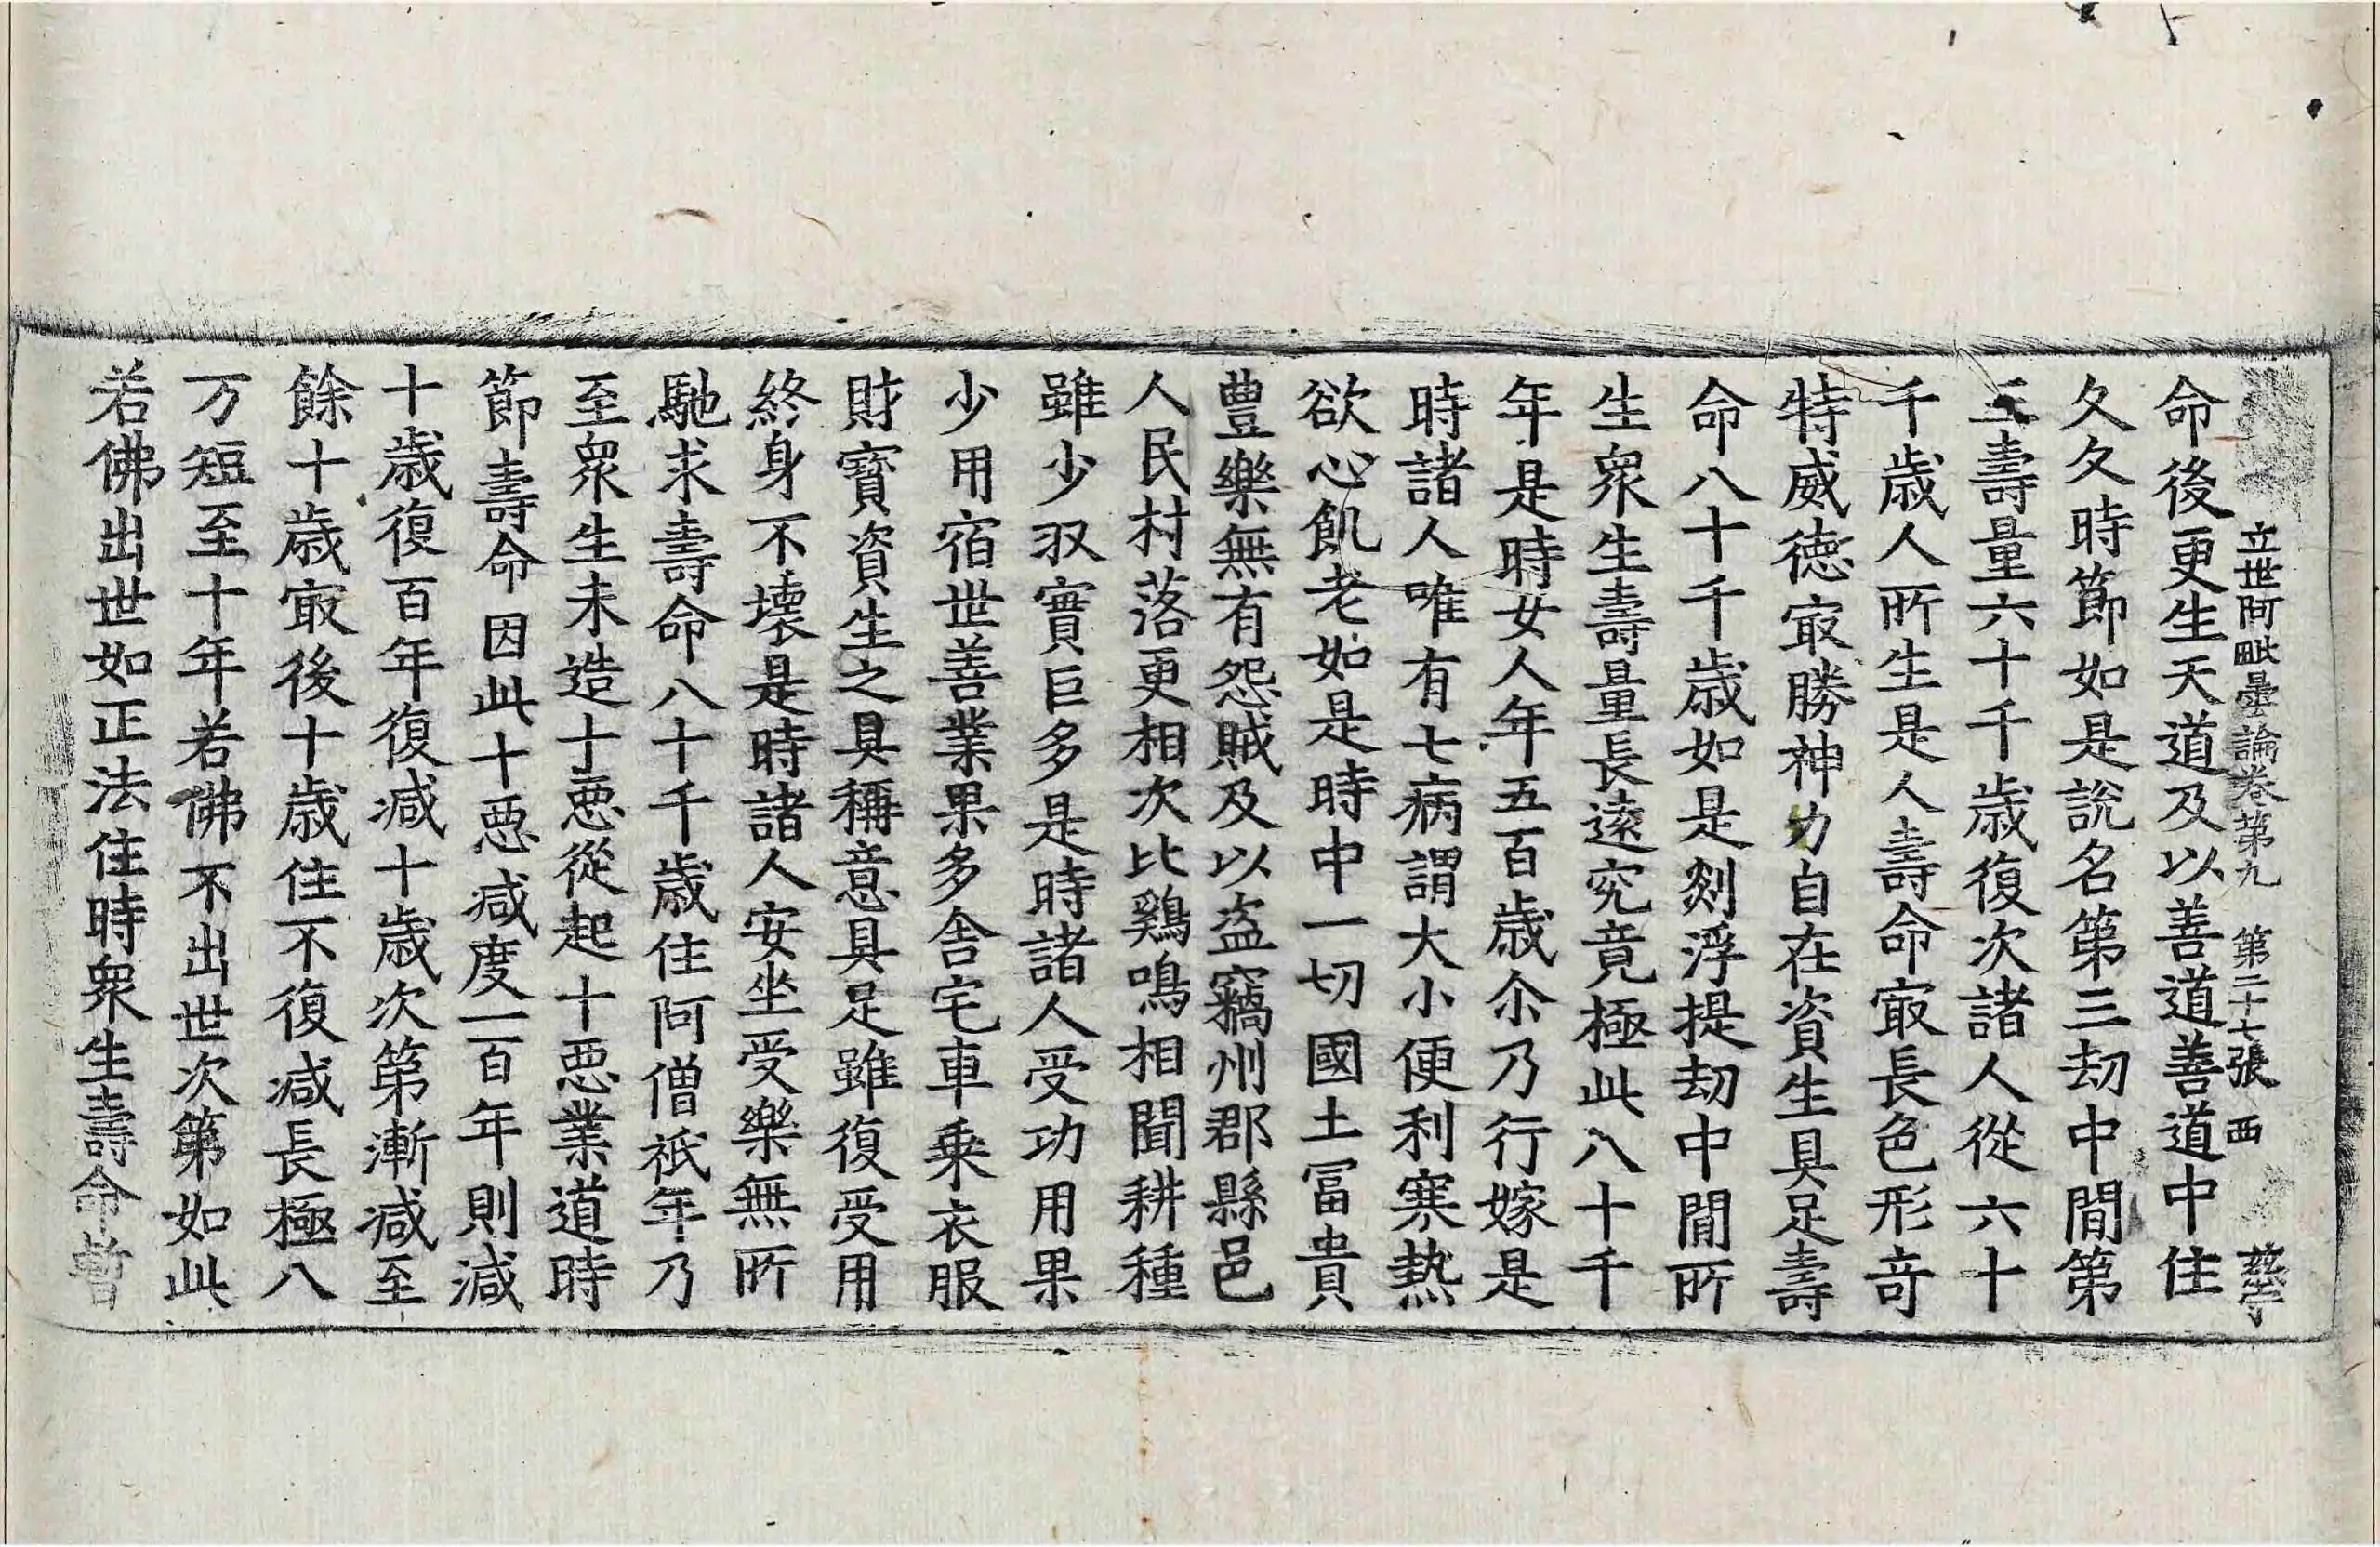 立世阿毗曇論卷第九 第二十七張 西
命後更生天道及以善道善道中住
久久時節如是說名第三劫中間第
三壽量六十千歲復次諸人從六十
千歲人所生是人壽命㝡長色形奇
特威德㝡勝神力自在資生具足壽
命八十千歲如是剡浮提劫中間所
生衆生壽量長遠究竟極此八十千
年是時女人年五百歲尒乃行嫁是
時諸人唯有七病謂大小便利寒熱
欲心飢老如是時中一切國土冨貴
豊樂無有怨賊及以盗竊州郡縣邑
人民村落更相次比鷄鳴相聞耕種
雖少收實巨多是時諸人受功用果
少用宿世善業果多舍宅車乗衣服
財寶資生之具稱意具足雖復受用
終身不壞是時諸人安坐受樂無所
馳求壽命八十千歲住阿僧祇年乃
至衆生未造十惡從起十惡業道時
節壽命因此十惡减度一百年則減
十歲復百年復减十歲次第漸减至
餘十歲㝡後十歲住不復减長極八
万短至十年若佛不出世次第如此
若佛出世如正法住時衆生壽命暫